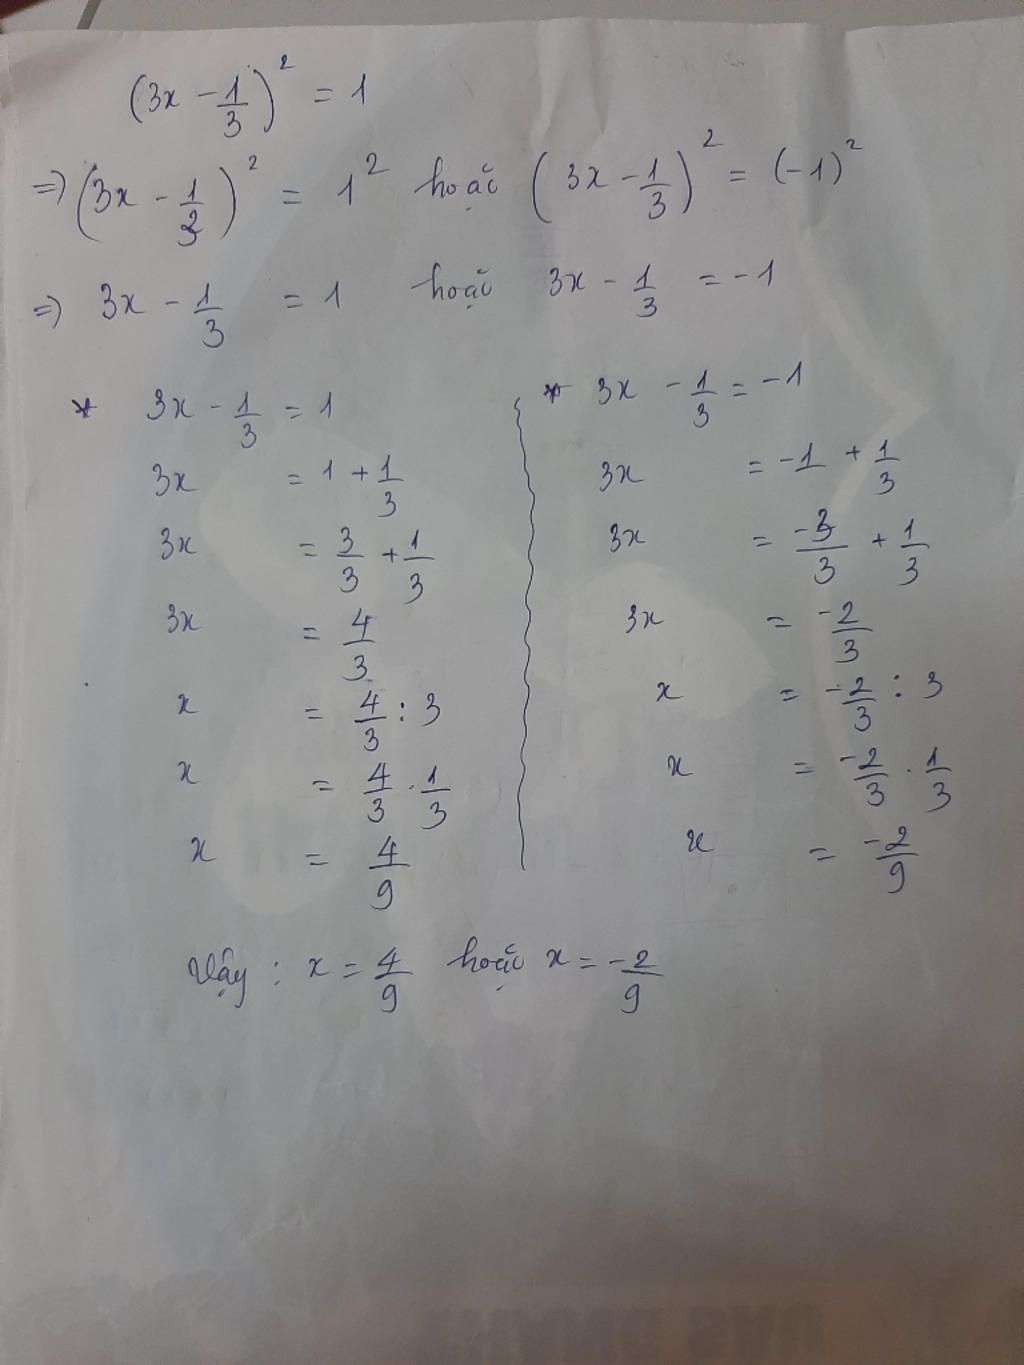 (3x - 1/3)² = 1
=> (3x - 1/3)² = 1² hoặc (3x - 1/3)² = (-1)²
=> 3x - 1/3 = 1 hoặc 3x - 1/3 = -1
* 3x - 1/3 = 1
3x = 1 + 1/3
3x = 3/3 + 1/3
3x = 4/3
x = 4/3 : 3
x = 4/3 . 1/3
x = 4/9
* 3x - 1/3 = -1
3x = -1 + 1/3
3x = -3/3 + 1/3
3x = -2/3
x = -2/3 : 3
x = -2/3 . 1/3
x = -2/9
Vậy : x = 4/9 hoặc x = -2/9